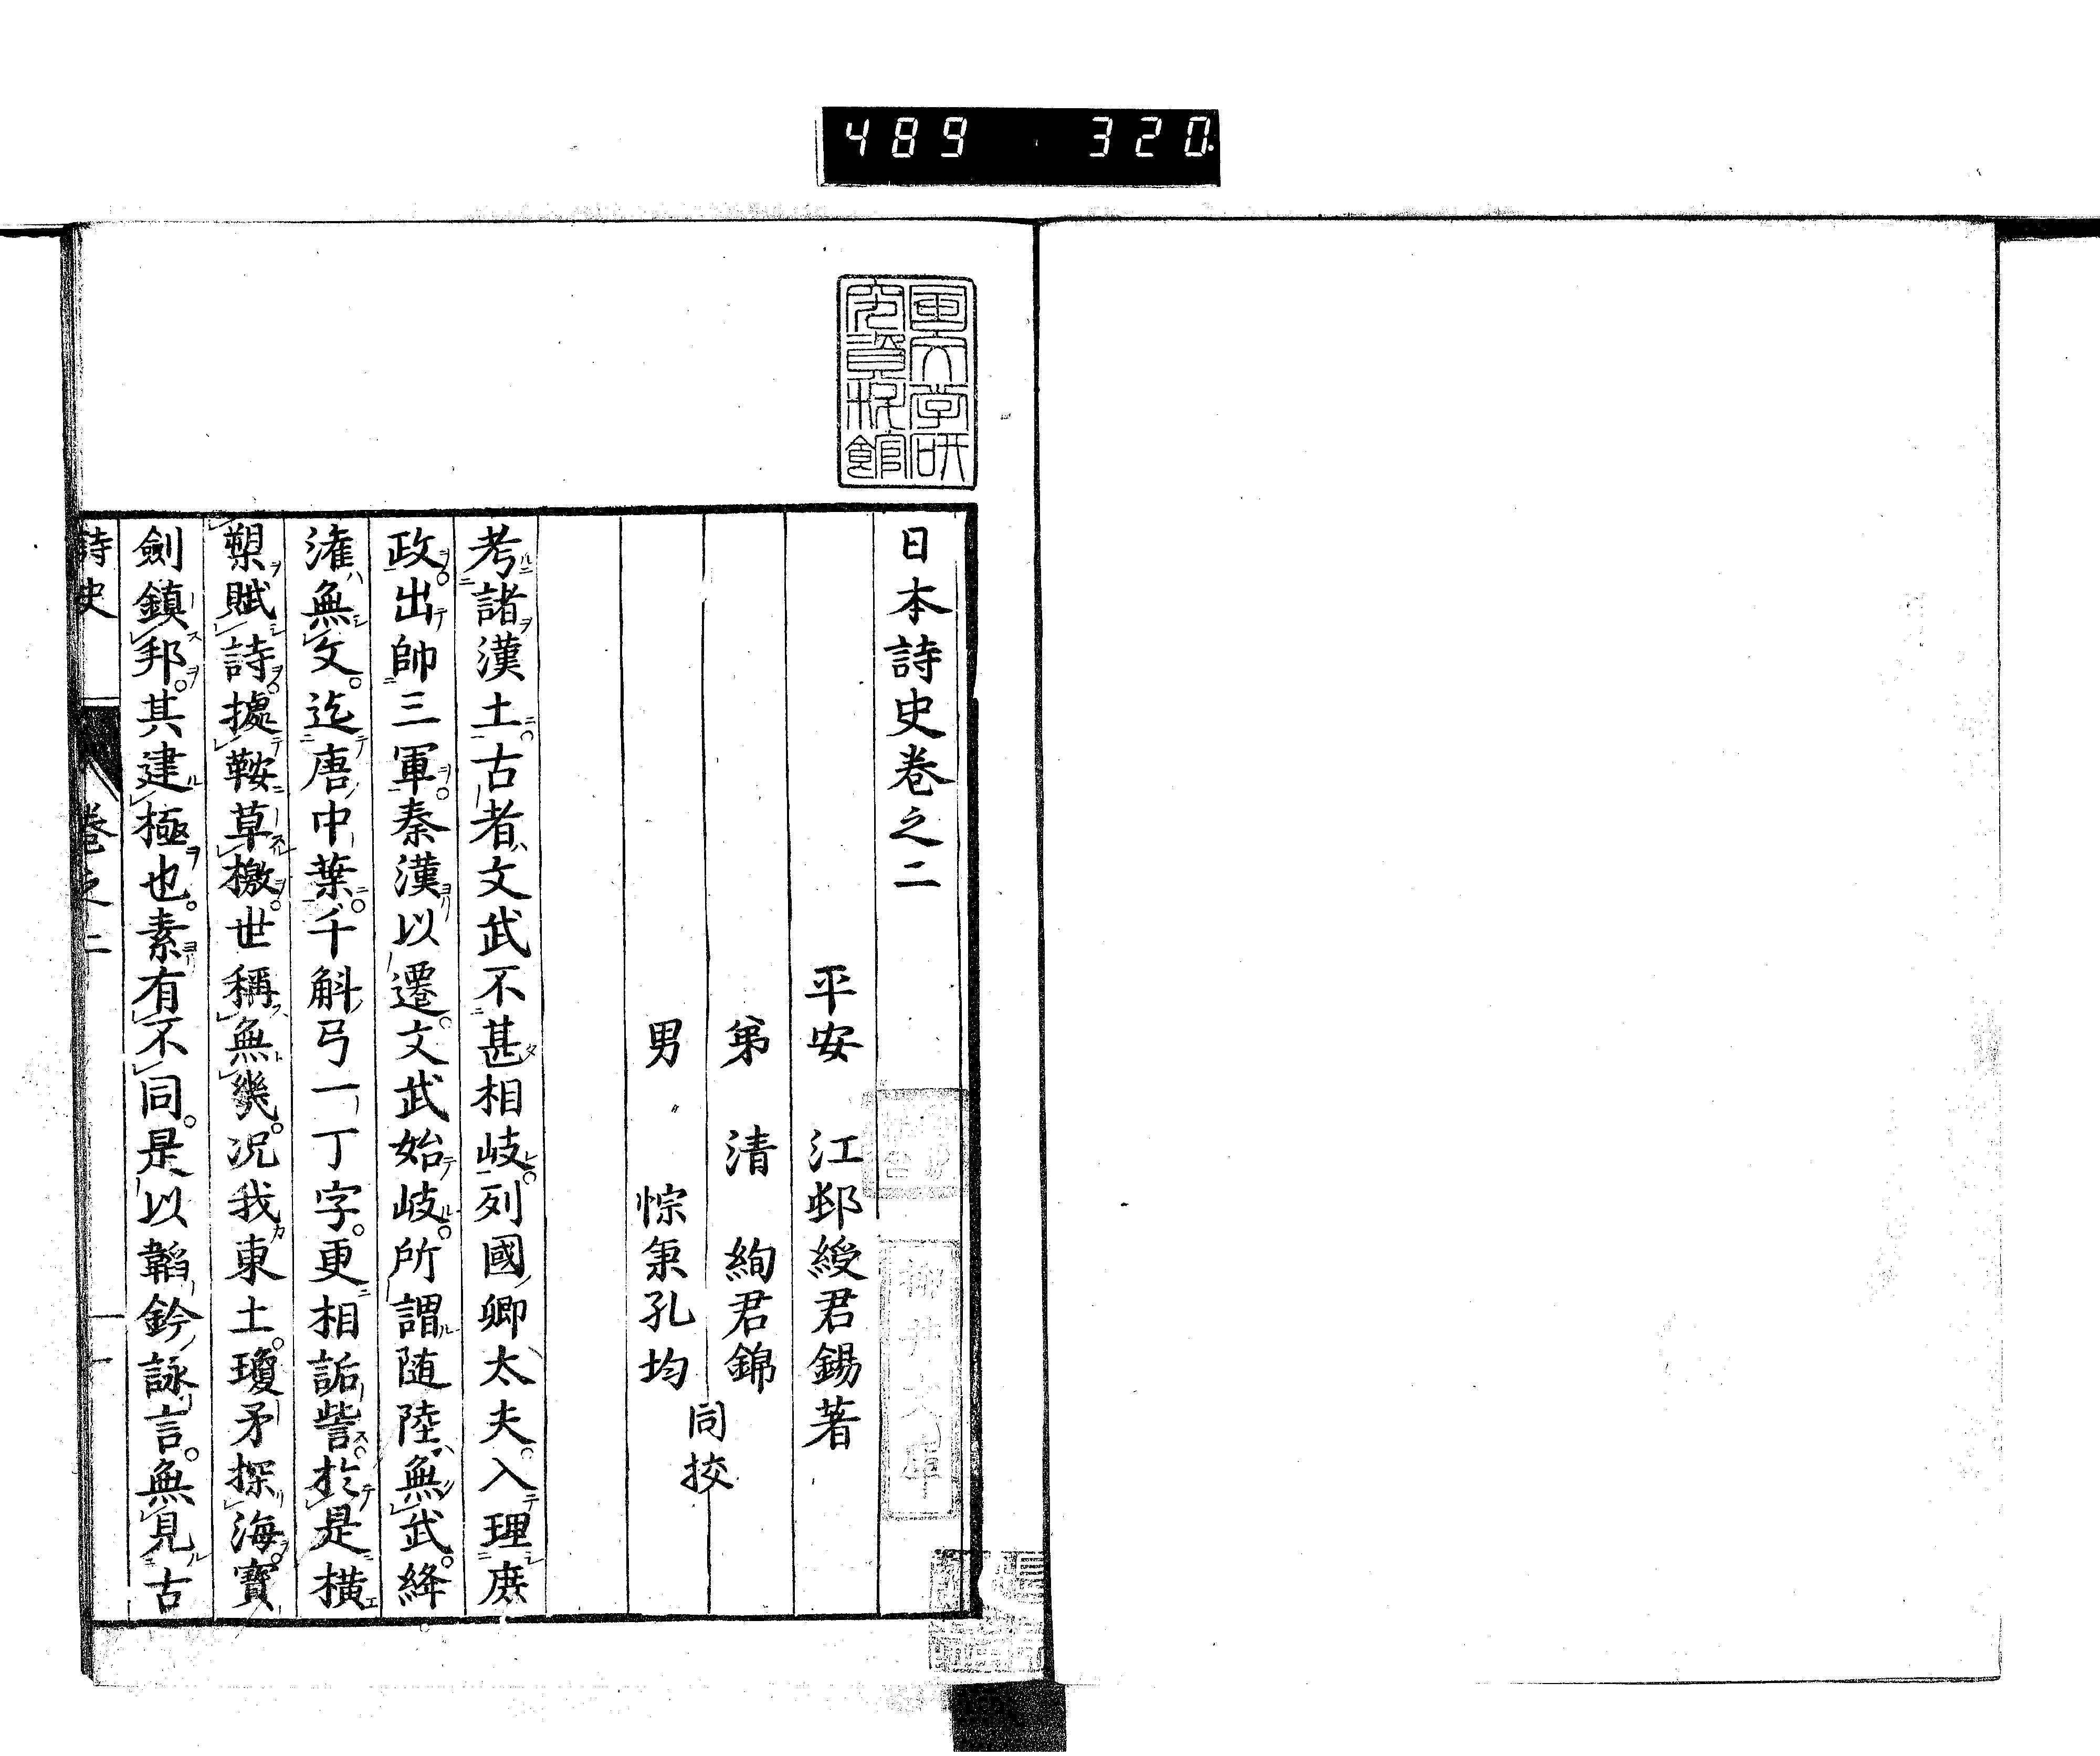 489 320
国文学研
究資料館
日本詩史卷之二
平安 江邨綬君錫著
弟 清 絢君錦
男 悰秉孔均
同挍
考諸漢土古者文武不甚相岐列國卿太夫入理庶
政出帥三軍秦漢以遷文武始岐所謂随陸無武絳
灌無文迄唐中葉千斛弓一丁字更相詬訾於是横
槊賦詩據鞍草檄世稱無幾况我東土瓊矛探海寳
劍鎮邦其建極也素有不同是以韜鈐詠言無見古
詩史 卷之二 一
柳井文庫